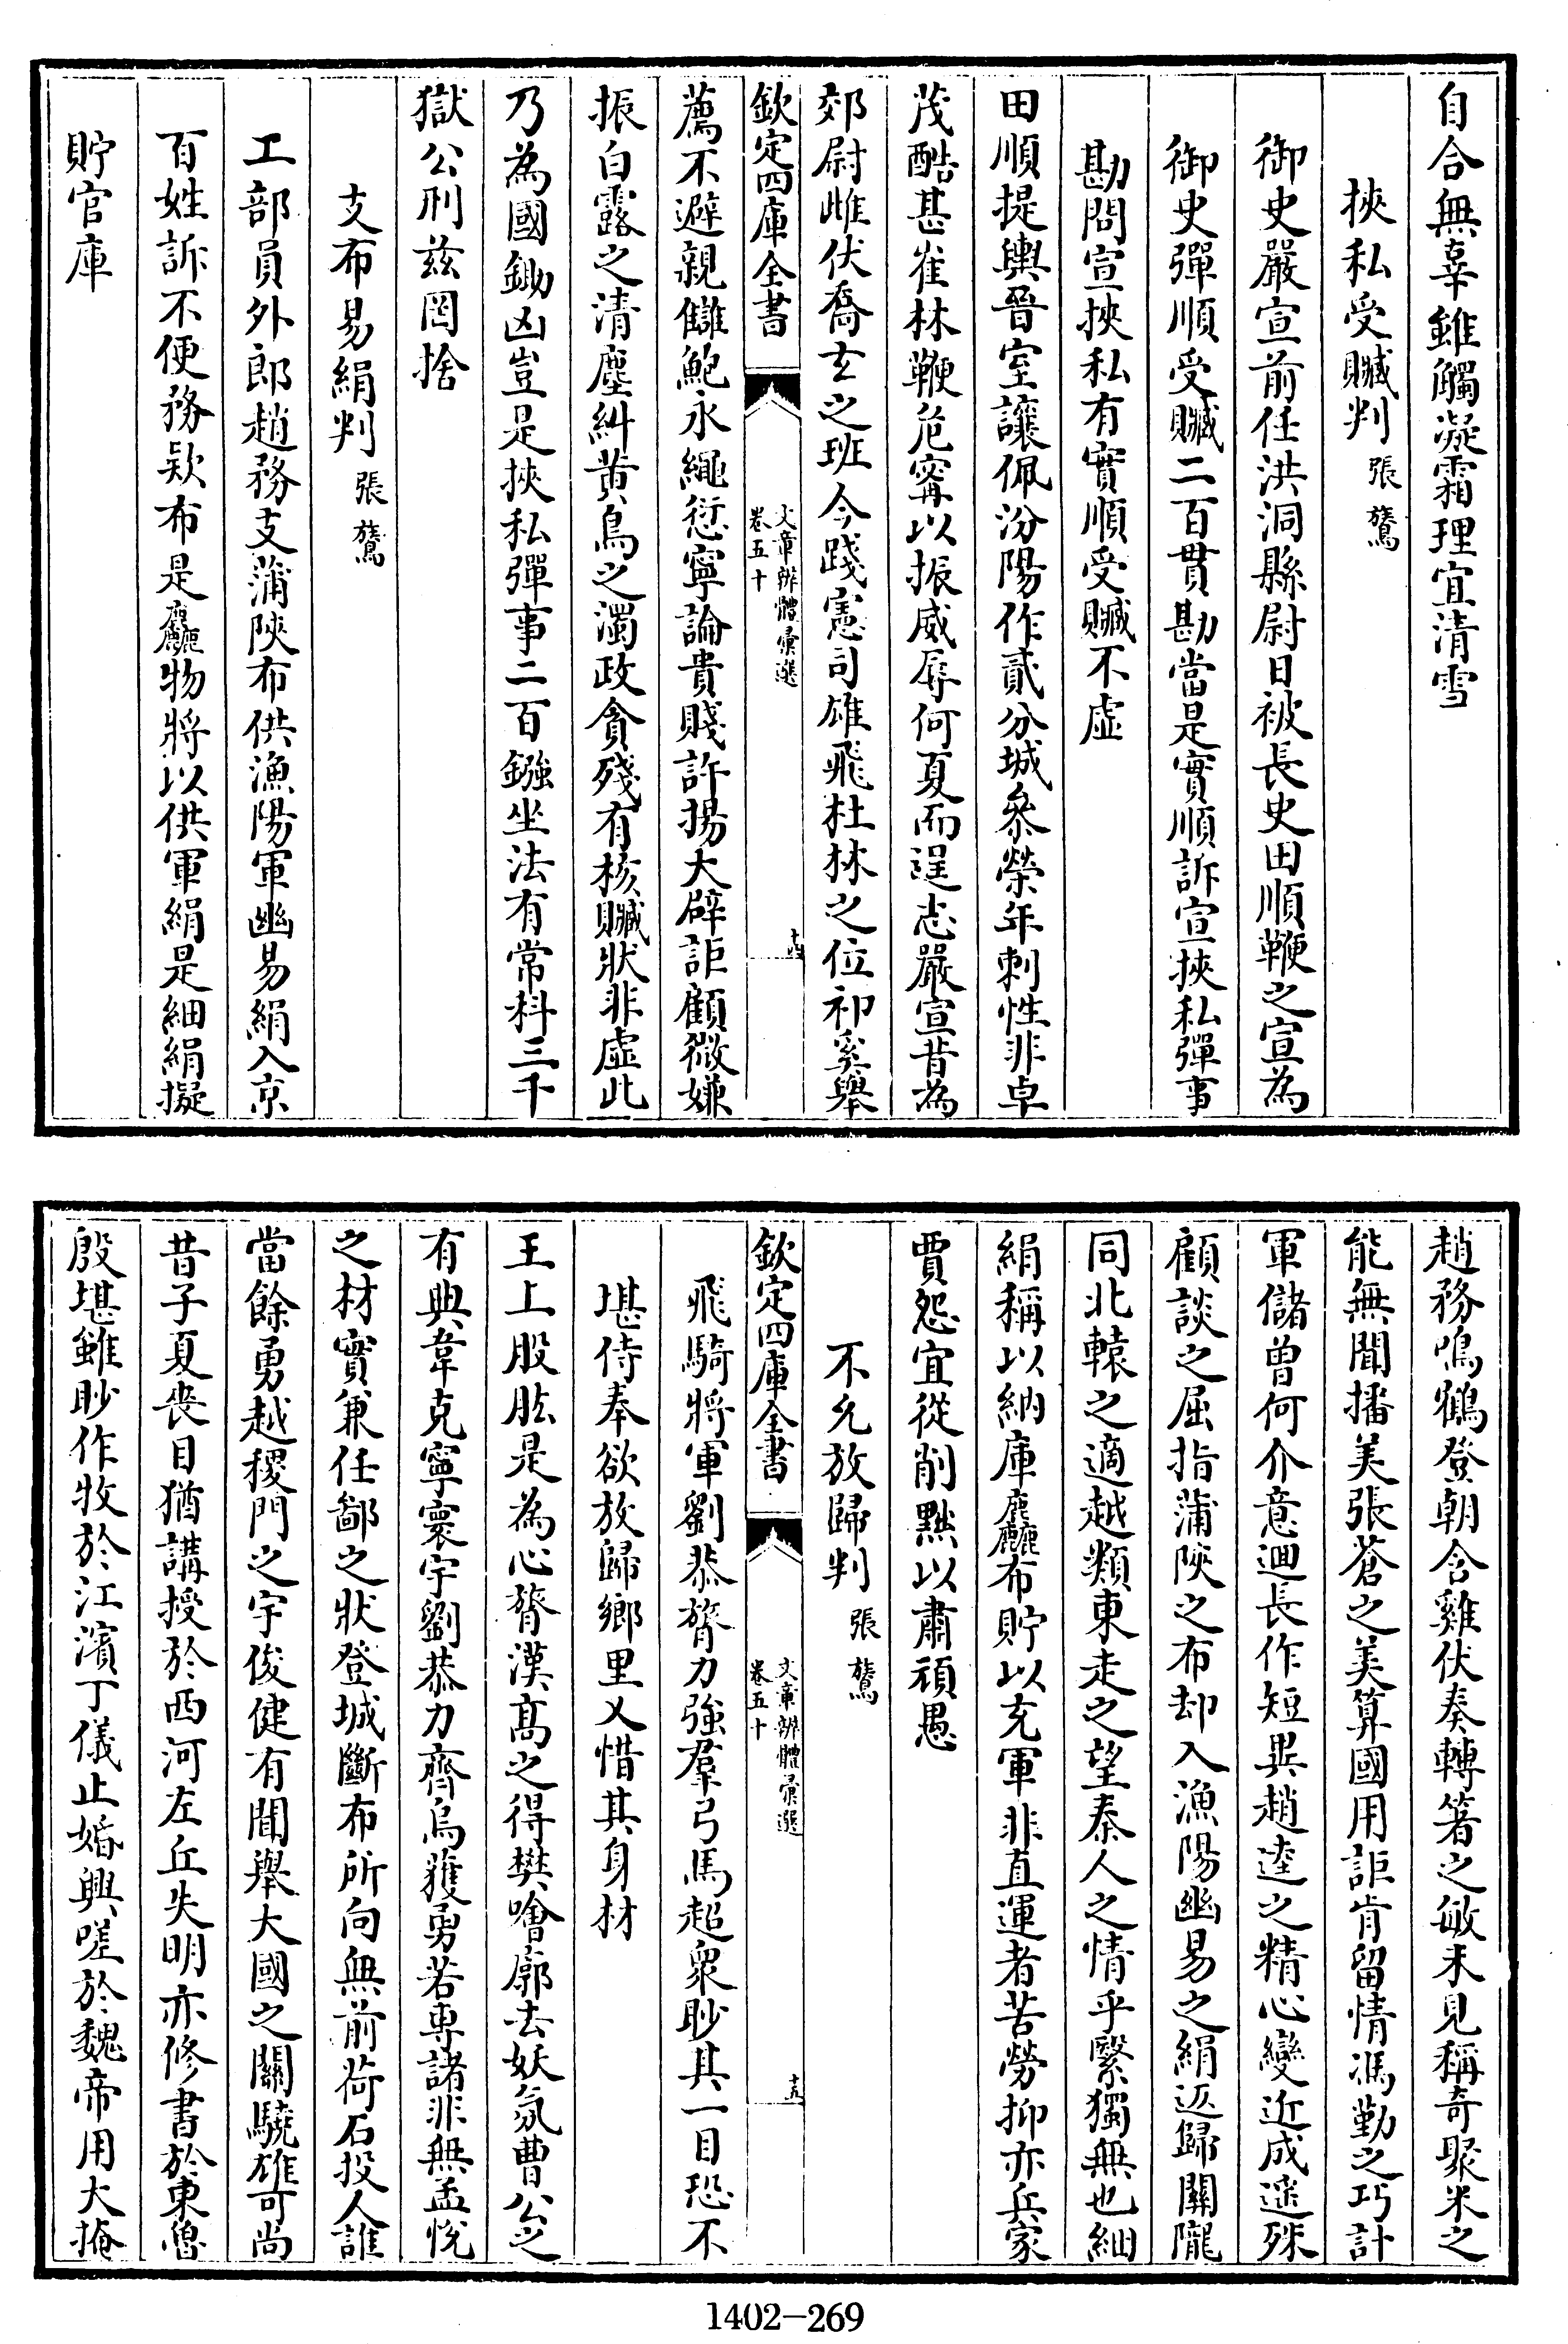 自合無辜雖觸凝霜理宜清雪
挾私受贓判 張鷟
御史嚴宣前任洪洞縣尉日被長史田順鞭之宣為
御史彈順受贓二百貫勘當是實順訴宣挾私彈事
勘問宣挾私有實順受贓不虛
田順提輿晉室讓佩汾陽作貳分城叅榮年刺性非卓
茂酷甚崔林鞭危寗以振威辱何夏而逞志嚴宣昔為
郊尉雌伏喬玄之班今踐憲司雄飛杜林之位祁奚舉
欽定四庫全書
文章辨體彚選
卷五十
十四
薦不避親讎鮑永繩愆寧論貴賤許揚大辟詎顧微嫌
振白露之清塵糾黄鳥之濁政貪殘有核贓狀非虛此
乃為國鋤凶豈是挾私彈事二百鏹坐法有常科三千
獄公刑兹罔捨
支布易絹判 張鷟
工部員外郎趙務支蒲陜布供漁陽軍幽易絹入京
百姓訴不便務欵布是麤物將以供軍絹是細絹擬
貯官庫
趙務鳴鶴登朝含雞伏奏轉箸之敏未見稱奇聚米之
能無聞播美張蒼之美算國用詎肯留情馮勤之巧計
軍儲曾何介意迴長作短異趙逵之精心變近成遥殊
顧談之屈指蒲陜之布却入漁陽幽易之絹返歸關隴
同北轅之適越類東走之望秦人之情乎繄獨無也細
絹稱以納庫麤布貯以充軍非直運者苦勞抑亦兵家
賈怨宜從削黜以肅頑愚
不允放歸判 張鷟
欽定四庫全書
文章辨體彚選
卷五十
十五
飛騎將軍劉恭膂力強羣弓馬超衆眇其一目恐不
堪侍奉欲放歸鄉里又惜其身材
王上股肱是為心膂漢髙之得樊噲廓去妖氛曹公之
有典韋克寧寰宇劉恭力齊烏獲勇若專諸非無孟悅
之材實兼任鄙之狀登城斷布所向無前荷石投人誰
當餘勇越稷門之宇俊健有聞舉大國之關驍雄可尚
昔子夏丧目猶講授於西河左丘失明亦修書於東魯
殷堪雖眇作牧於江濱丁儀止婚興嗟於魏帝用大掩
1402-269